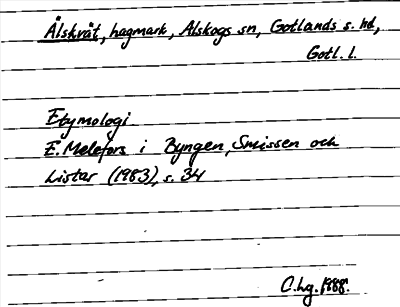 Ålskvät, hagmark, Alskogs sn, Gotlands s. hd,
Gotl. l.
Etymologi
E. Melefors i Byngen, Smissen och
Listar (1983), s. 34
C.hg. 1988.